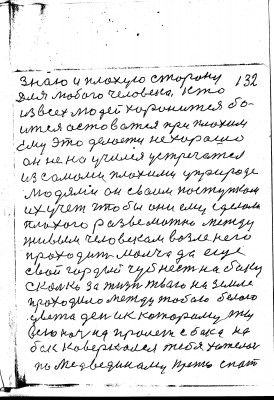 знаю и плохую сторону 132
для любого человека, кто
из всех людей хоронится бо-
ится астоватся при плохим
ему это делоету не харашо
он не на училея устречатся
из самоми плохими уприроде
людями он сваим поступкам
их учет чтобы они ему сделали
плохого разве можно между
живым человекам возле него
проходит молча да еще
свой гордый чуб нест на баку
сколко за жизн тваю на земле
проходило между тобою белого
цвета ден ик которому ты
всю ноч на пролет с бака на
бок коверкался тебя хателос
по медвединаму спат